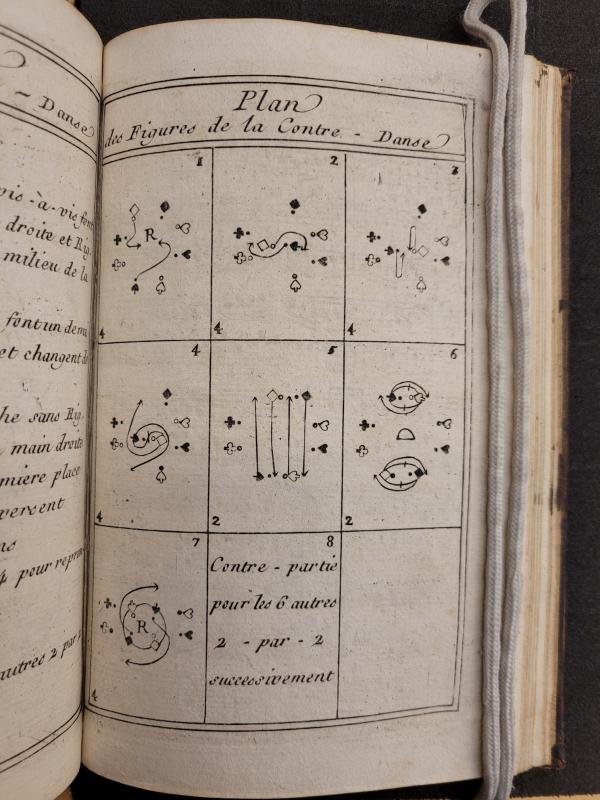 - Danse
vis-à-vis font
droite et Rig.
milieu de la
font un demi
et changent de
sans Rig.
main droite
miere place
versent
ns
4 pour repren
autres 2 par
Plan
des Figures de la Contre - Danse
1
2
3
R
4
4
4
4
5
6
4
2
2
7
8
R
Contre - partie
pour les 6 autres
2 - par - 2
successivement
4